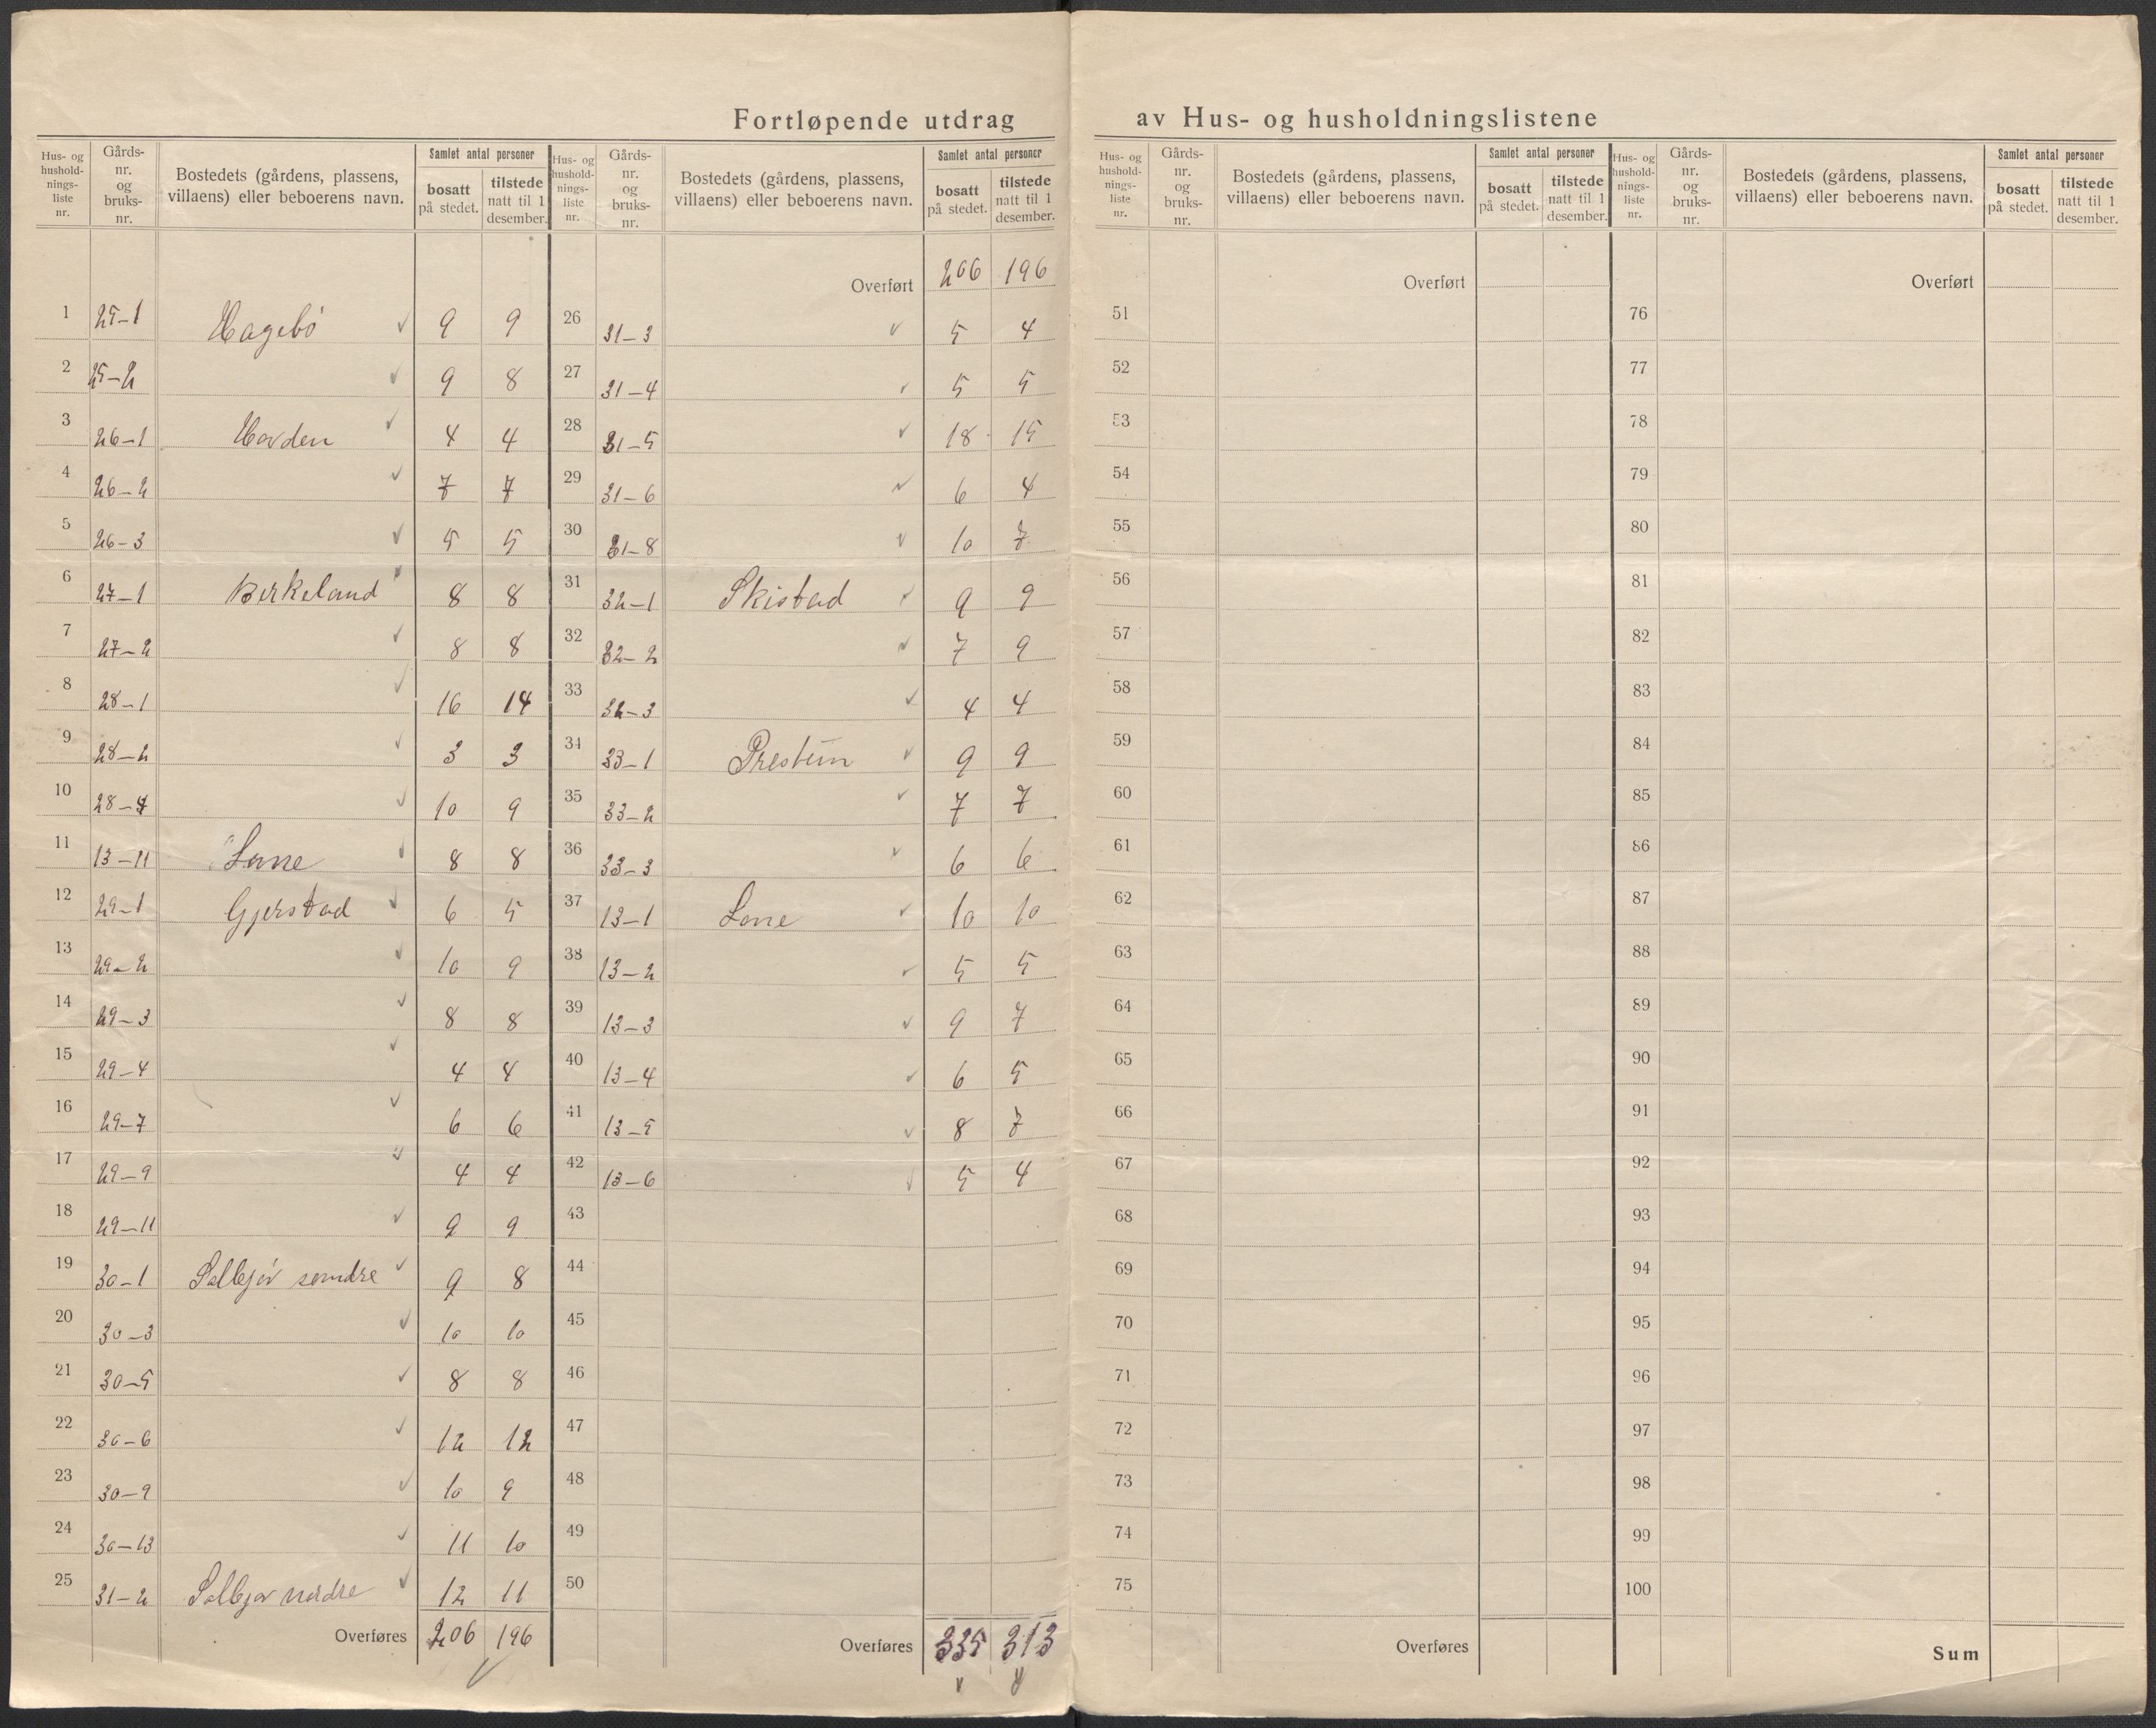 Fortløpende utdrag av Hus- og husholdningslistene
Hus- og husholdningsliste nr. Gårds-nr. og bruks-nr. Bostedets (gårdens, plassens, villaens) eller beboerens navn. Samlet antal personer bosatt på stedet. tilstede natt til 1 desember.
1 25-1 Hagebö 9 9
2 25-2 9 8
3 26-1 Hovden 4 4
4 26-2 7 7
5 26-3 5 5
6 27-1 Birkeland 8 8
7 27-2 8 8
8 28-1 16 14
9 28-2 3 3
10 28-4 10 9
11 13-11 Lone 8 8
12 29-1 Gjerstad 6 5
13 29-2 10 9
14 29-3 8 8
15 29-4 4 4
16 29-7 6 6
17 29-9 4 4
18 29-11 9 9
19 30-1 Solbjör söndre 9 8
20 30-3 10 10
21 30-5 8 8
22 30-6 12 12
23 30-9 10 9
24 30-13 11 10
25 31-2 Solbjör nordre 12 11
Overføres 206 196
Hus- og husholdningsliste nr. Gårds-nr. og bruks-nr. Bostedets (gårdens, plassens, villaens) eller beboerens navn. Samlet antal personer bosatt på stedet. tilstede natt til 1 desember.
Overført 206 196
26 31-3 5 4
27 31-4 5 5
28 31-5 18 15
29 31-6 6 4
30 31-8 10 7
31 32-1 Skistad 9 9
32 32-2 7 9
33 32-3 4 4
34 33-1 Prestun 9 9
35 33-2 7 7
36 33-3 6 6
37 13-1 Lone 10 10
38 13-2 5 5
39 13-3 9 7
40 13-4 6 5
41 13-5 8 7
42 13-6 5 4
43
44
45
46
47
48
49
50
Overføres 335 313
Hus- og husholdningsliste nr. Gårds-nr. og bruks-nr. Bostedets (gårdens, plassens, villaens) eller beboerens navn. Samlet antal personer bosatt på stedet. tilstede natt til 1 desember.
Overført
51
52
53
54
55
56
57
58
59
60
61
62
63
64
65
66
67
68
69
70
71
72
73
74
75
Overføres
Hus- og husholdningsliste nr. Gårds-nr. og bruks-nr. Bostedets (gårdens, plassens, villaens) eller beboerens navn. Samlet antal personer bosatt på stedet. tilstede natt til 1 desember.
Overført
76
77
78
79
80
81
82
83
84
85
86
87
88
89
90
91
92
93
94
95
96
97
98
99
100
Sum